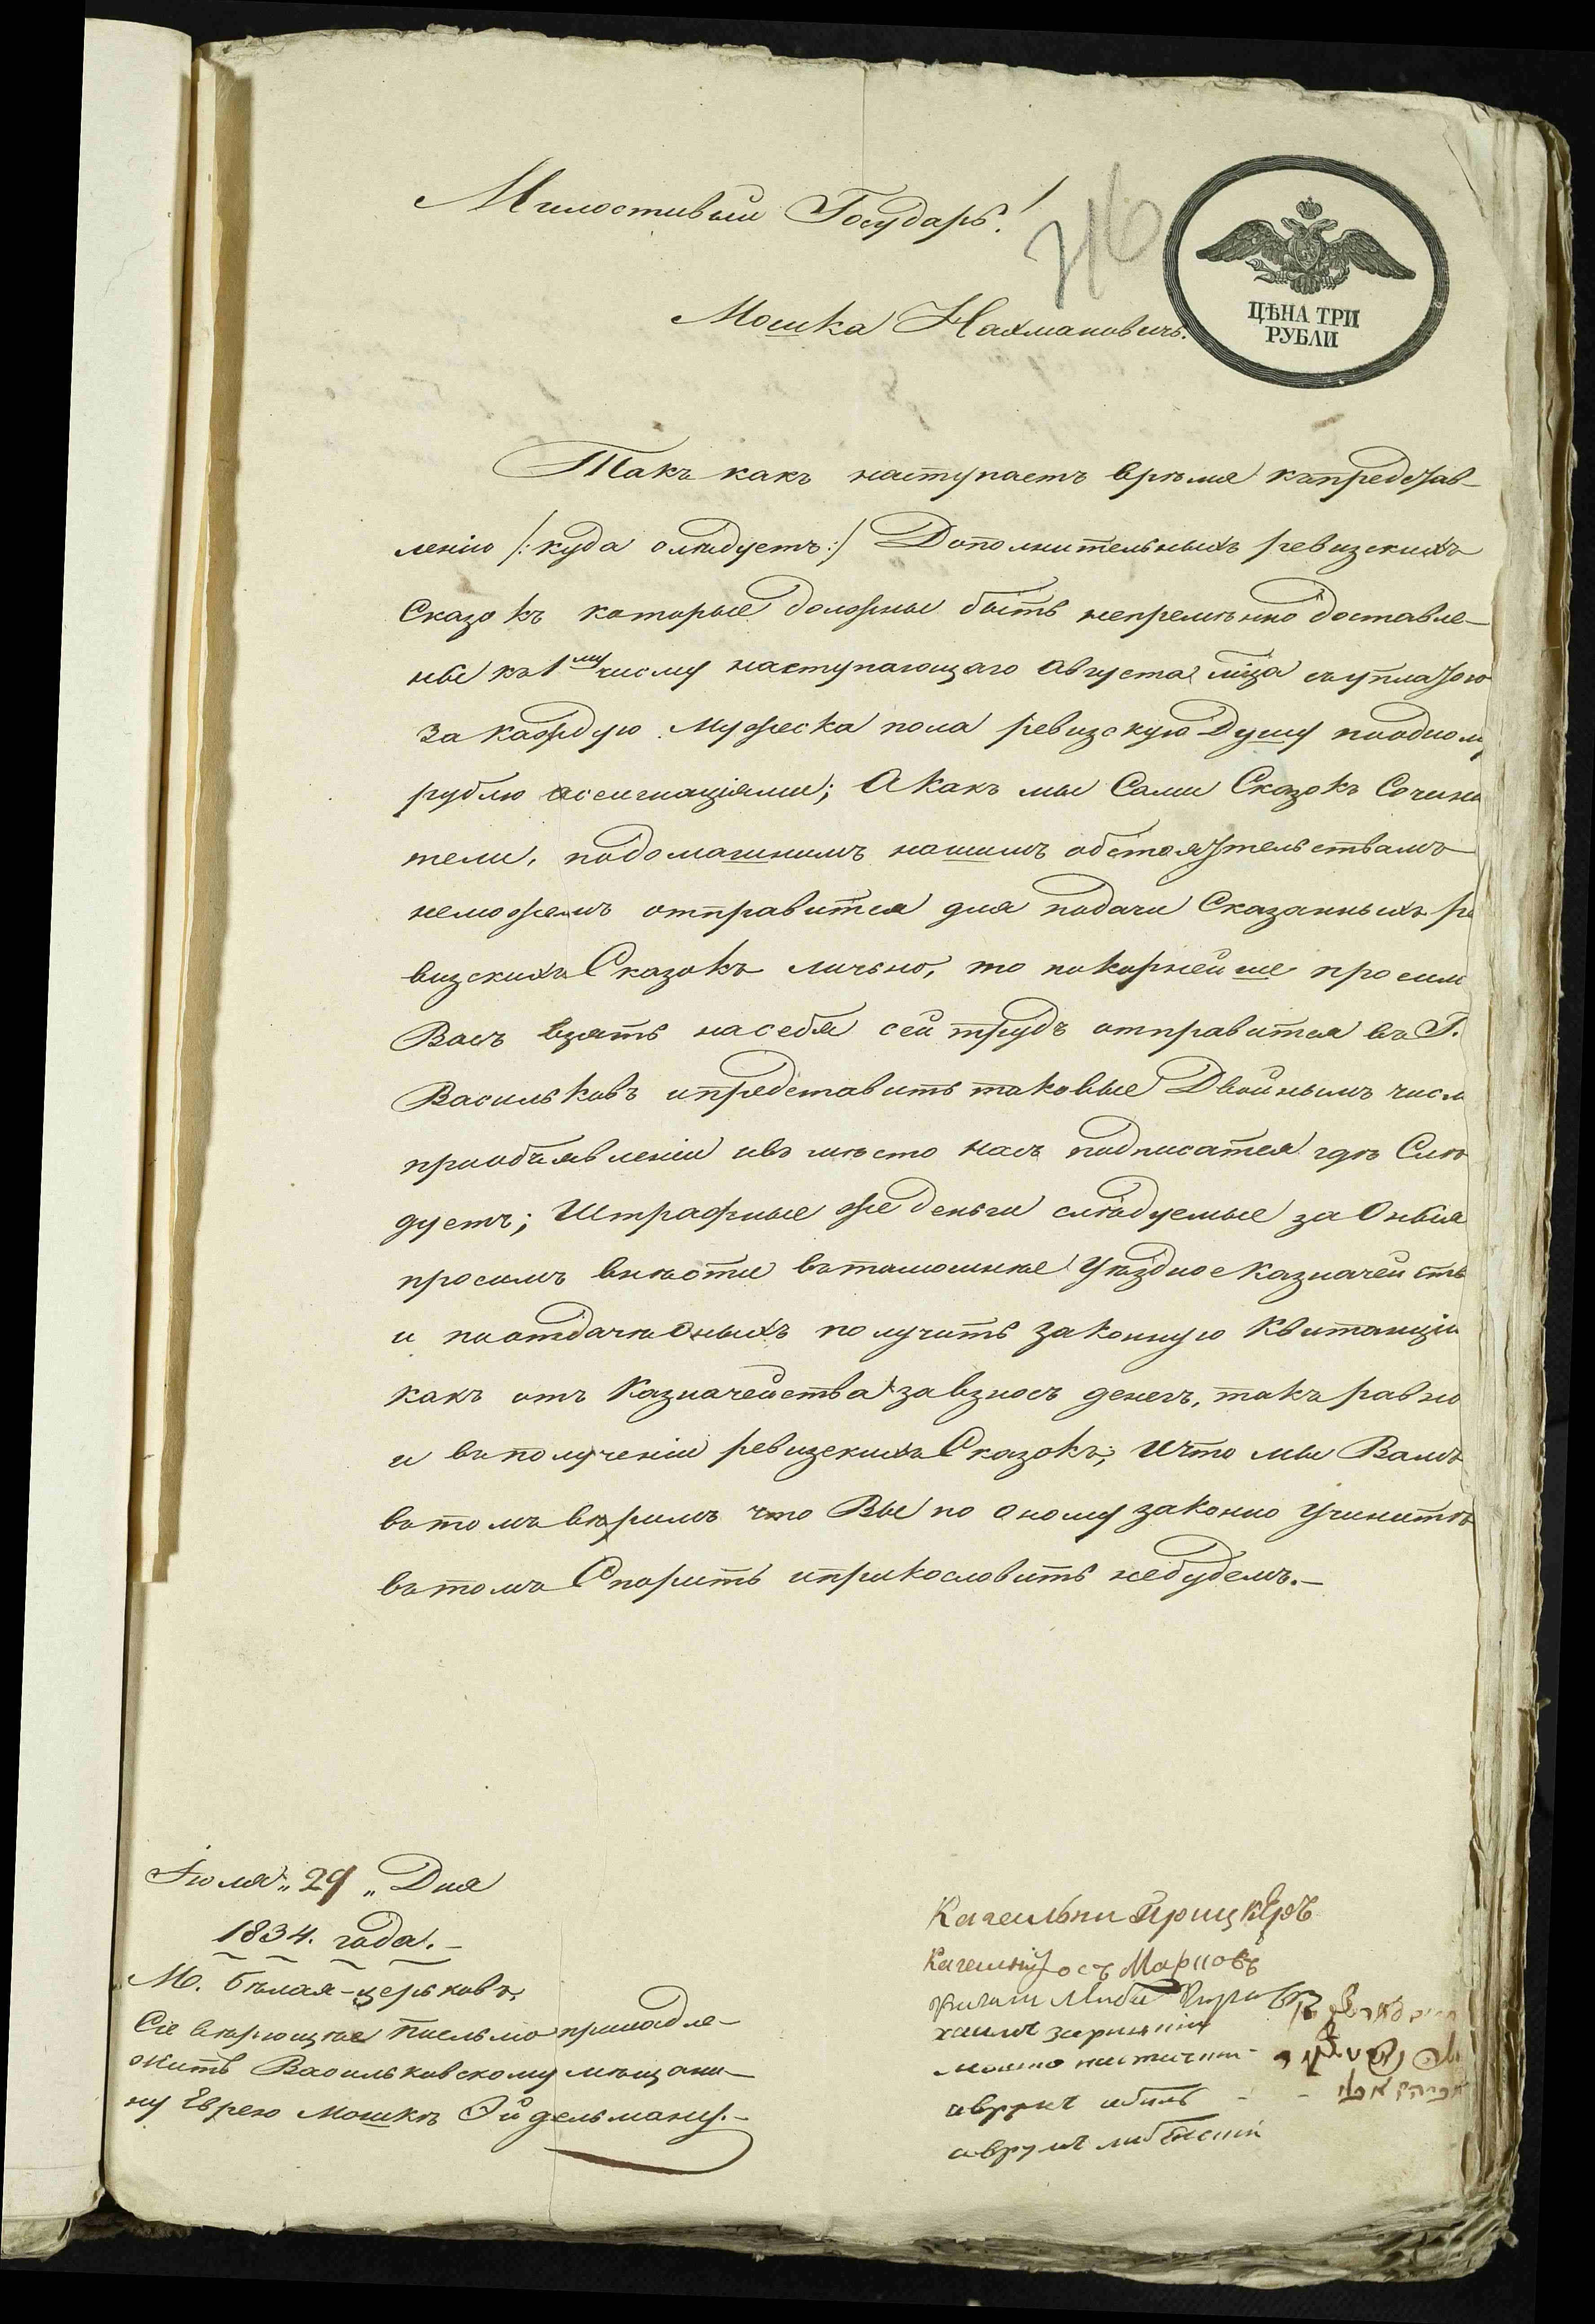 Милостивый Государь!
ЦѢНА ТРИ
РУБЛИ
Мошка Нахмановичъ.
Такъ какъ наступаетъ врѣмя къпредстав-
ленію /:куда слѣдуетъ:/ Дополнительныхъ ревизскихъ
Сказокъ которые должны быть непремѣнно доставле-
ны къ 1му числу наступающаго августа мца съуплатою
за каждую мужеска пола ревизскую Душу поодному
рублю ассигнаціями; А какъ мы Сами Сказокъ Сочини
тели, подомашнимъ нашимъ обстоятельствамъ
неможемъ отправится для подачи Сказанныхъ ре
визскихъ Сказокъ лично, то покорнейше просим
Васъ взять насебя сей трудъ отправится въ Г.
Васильковъ ипредставить таковые Двойнымъ числ
приобъявленіи ивъ мѣсто насъ подписатся гдѣ Слѣ
дуетъ; Штрафные же деньги слѣдуемые за Оныя
просимъ внѣсти вътамошнѣе Уѣздное Казначейств
и поотдачи Оныхъ получить законную Квитанціи
какъ отъ Казначейства завзносъ денегъ, такъ равно
и вполученіи ревизскихъ Сказокъ; Ичто мы Вамъ
вътомъ вѣримъ что Вы по оному законно Учинитѣ
вътомъ Спорить иприкословить небудемъ.-
Іюля „29„ Дня
1834. года.-
М. бѣлая-церьковъ.
Сіе вѣрющее письмо принадле-
жить Васильковскому мѣщани-
ну Еврею Мошкѣ Эйдельману.-
Кагельни
Марковъ
хаимъ
мошко
аврумъ
аврумъ